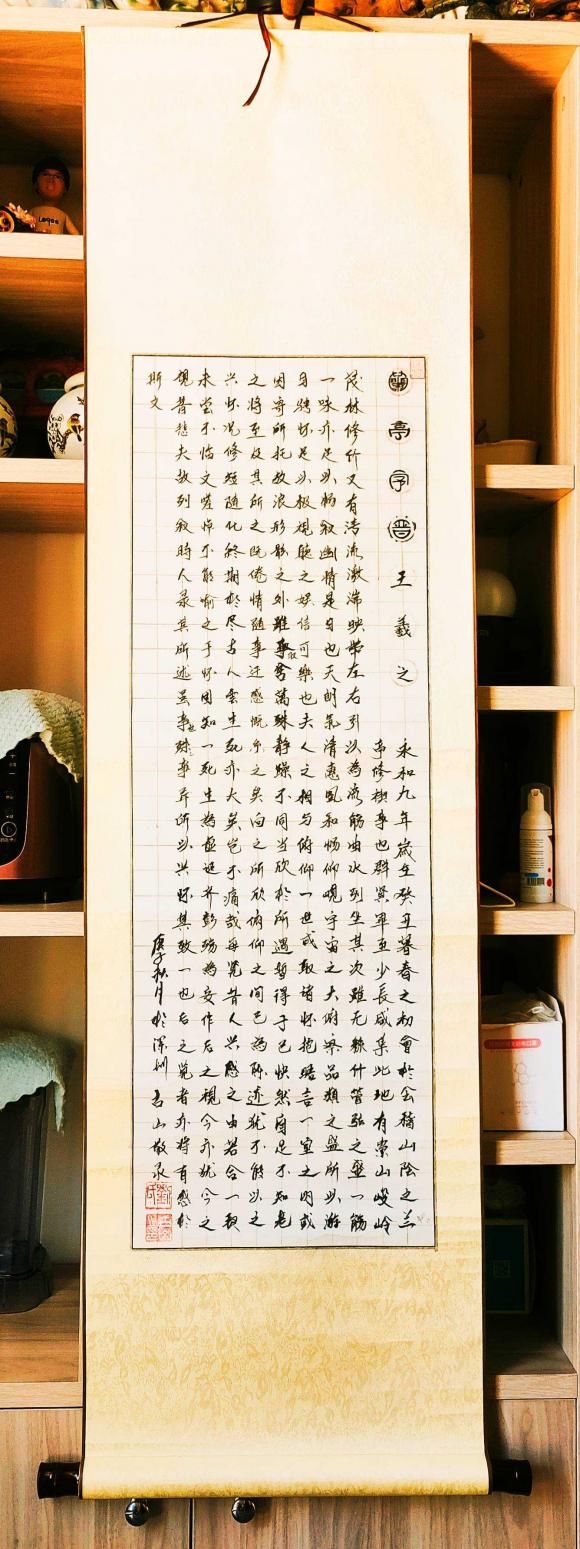 蘭亭序晉王羲之
永和九年歲在癸丑暮春之初會於会稽山陰之兰
亭修禊事也群賢畢至少長咸集此地有崇山峻岭
茂林修竹又有清流激湍映帶左右引以為流觴曲水列坐其次雖无絲竹管弦之盛一觴
一咏亦足以畅叙幽情是日也天朗氣清惠風和畅仰觀宇宙之大俯察品類之盛所以游
目骋怀足以极視聽之娱信可樂也夫人之相与俯仰一世或取諸怀抱晤言一室之内或
因寄所托放浪形骸之外雖取舍萬殊静躁不同当欣於所遇暂得于己快然自足不知老
之將至及其所之既倦情隨事迁感慨系之矣向之所欣俯仰之间已為陈迹犹不能以之
兴怀况修短隨化終期於尽古人雲生死亦大矣岂不痛哉每覽昔人兴感之由若合一契
未尝不临文嗟悼不能喻之于怀固知一死生為虚诞齐彭殇為妄作后之視今亦犹今之
視昔悲夫故列叙時人录其所述虽世殊事异所以兴怀其致一也后之覽者亦将有感於
斯文
庚子秋月於深圳吉山敬录
Legoo